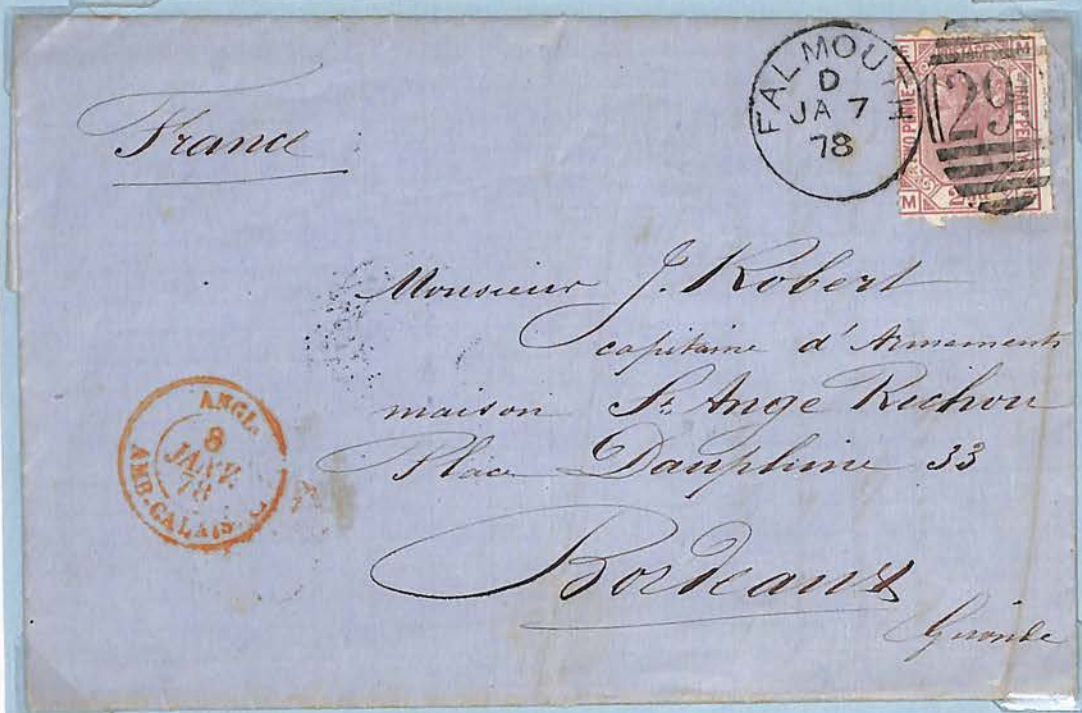 France
FALMOUTH
D
JA 7
78
29
POSTAGE
M
M
Monsieur J. Robert
capitaine d'Armements
maison St. Ange Richon
Place Dauphine 33
Bordeaux
Gironde
ANGL.
8
JANV.
78
AMB. CALAIS